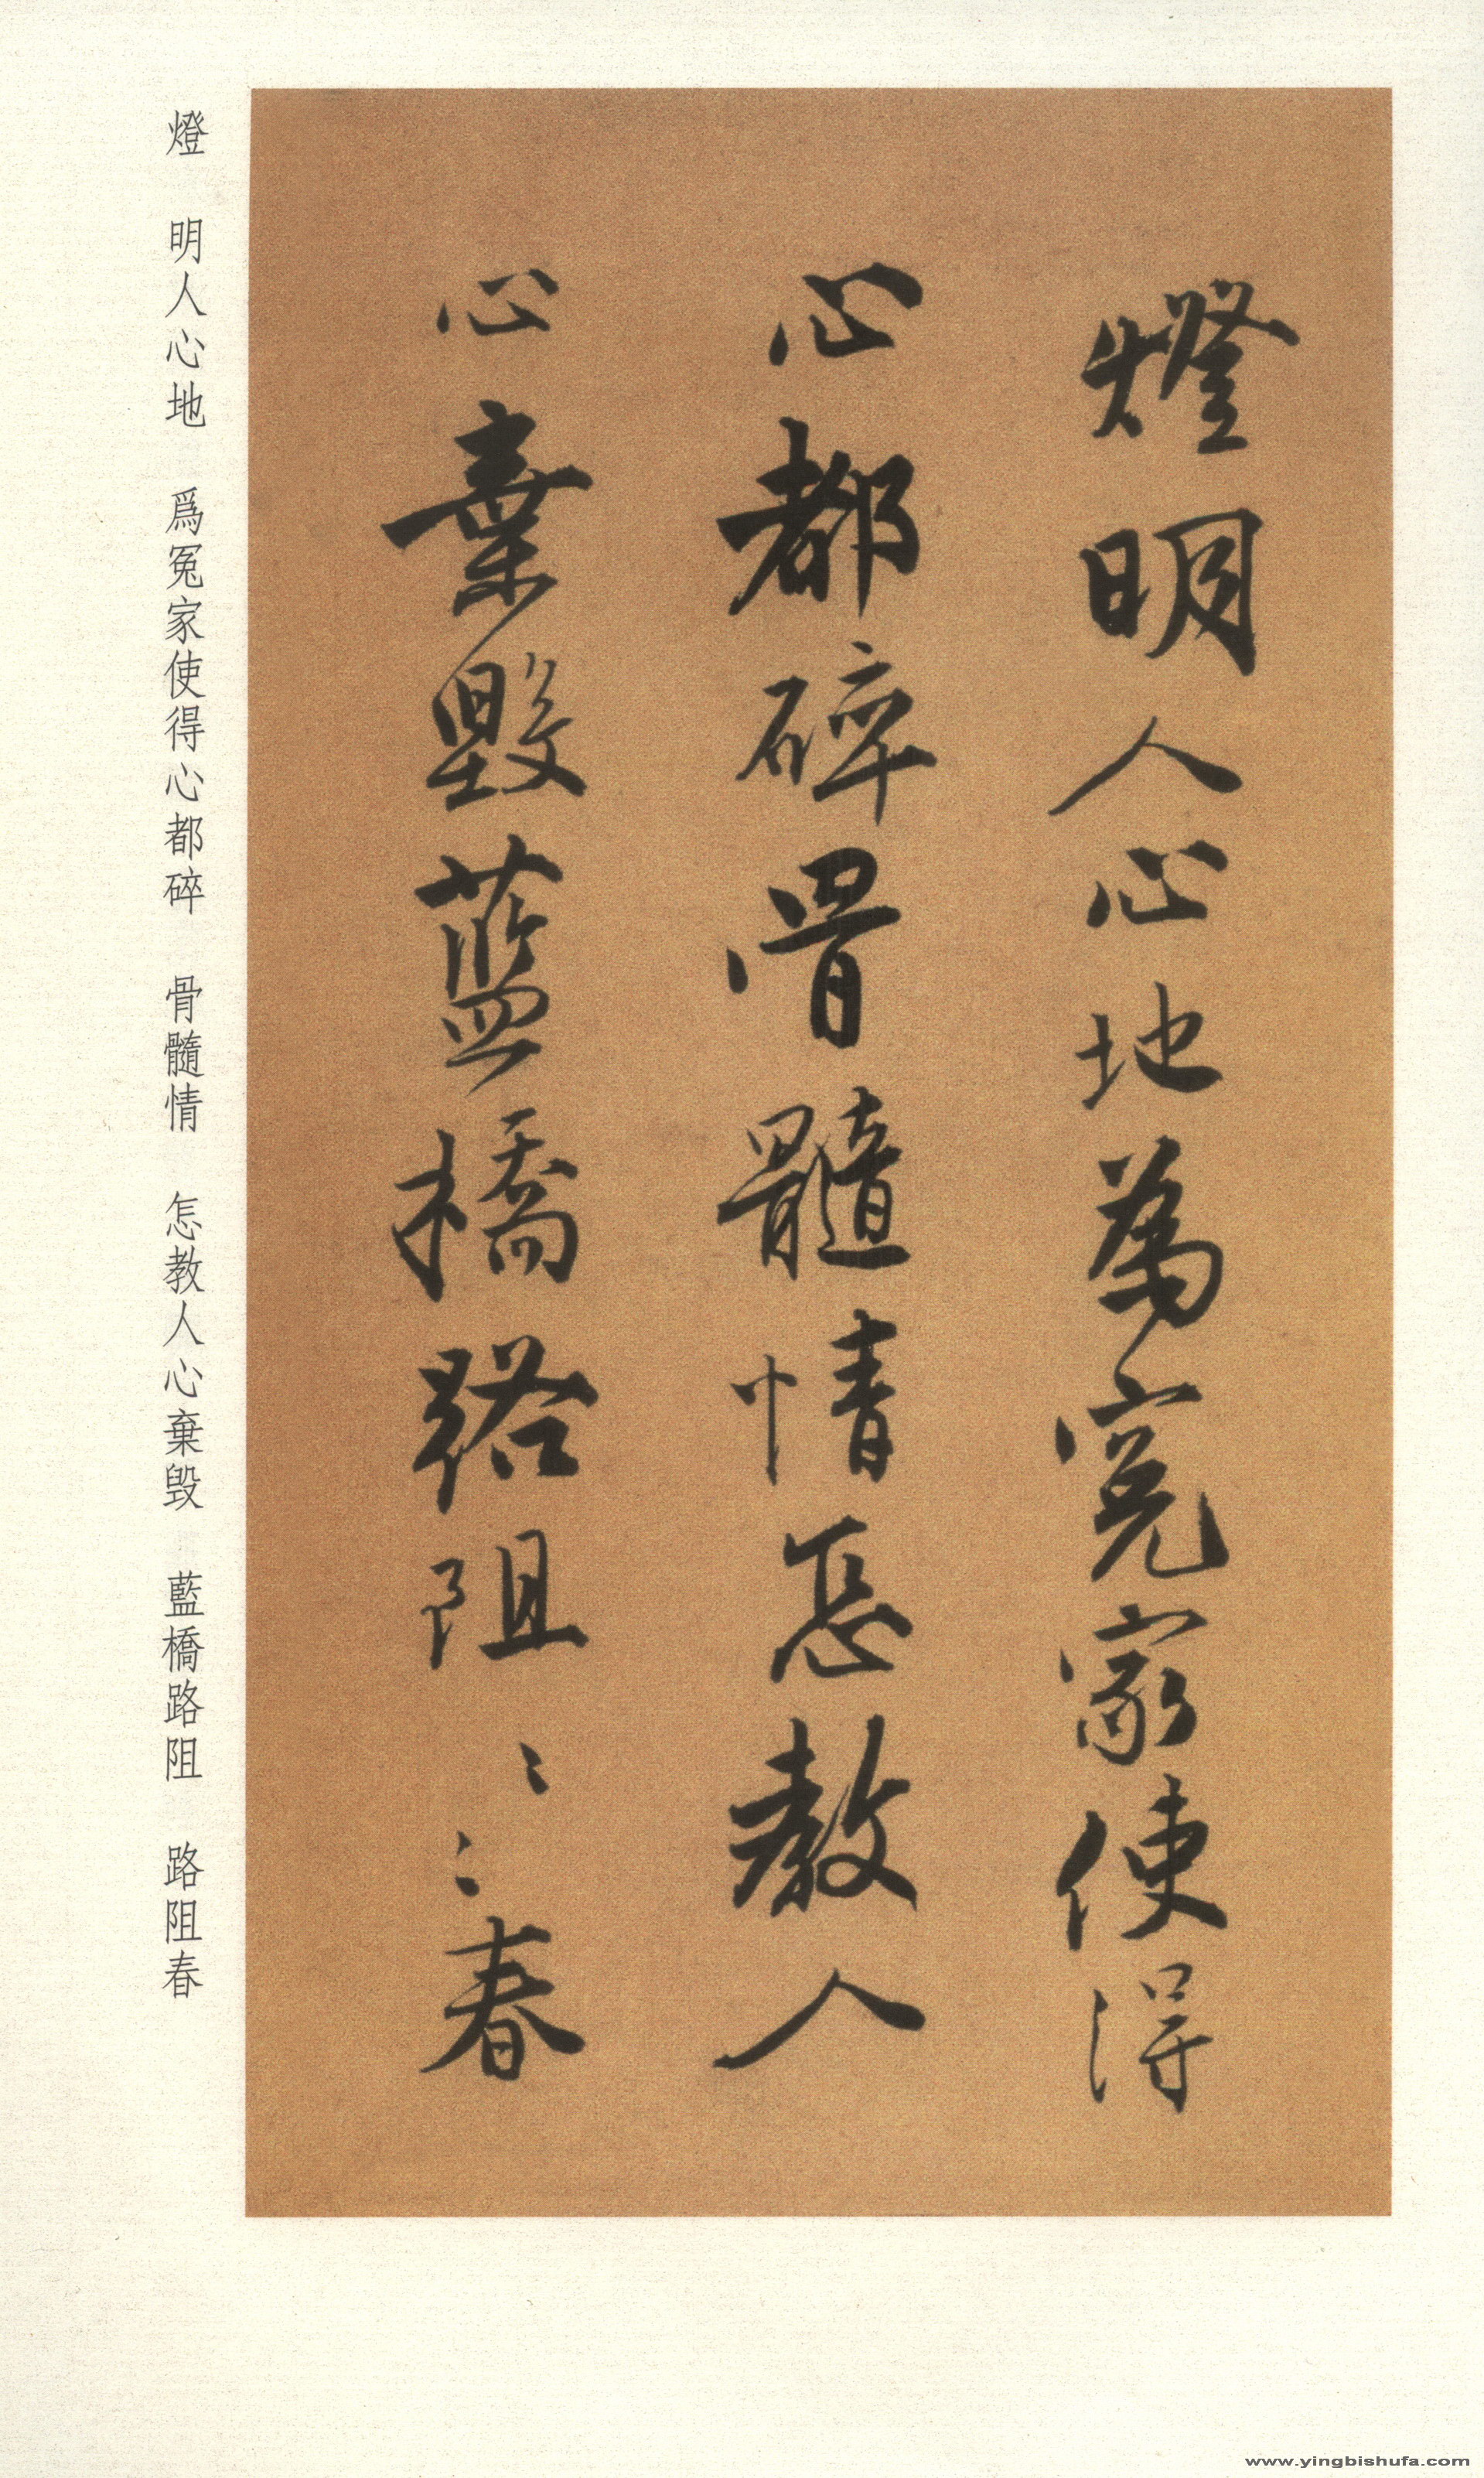 燈明人心地為冤家使得
心都碎骨髓情怎教人
心棄毀藍橋路阻〻〻春
燈 明人心地 爲冤家使得心都碎 骨髓情 怎教人心棄毀 藍橋路阻 路阻春
www.yingbishufa.com